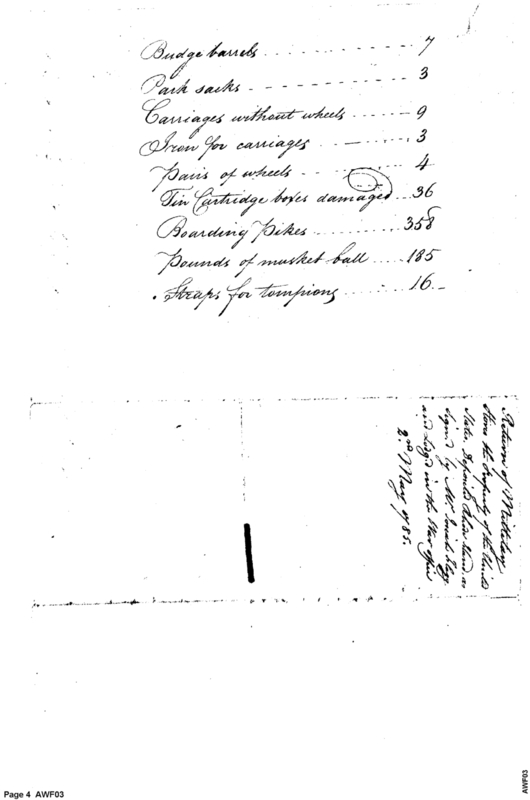 Budge barrels . . . . . . . . . . 7
Park sacks - - - - - - - - - - 3
Carriages without wheels . . . - - - . 9
Iron for carriages . . . - - . . 3
Pairs of wheels - - . . . . 4
Tin Cartridge boxes damaged . . 36
Boarding Pikes . . . . . . . . . 358
Pounds of musket ball . . . . . 185
Straps for tompions . . . . . . 16
Return of Military
Stores the Property of the United
States, Deposited Island as
signed by Mr.
and Lodg'd in the War office
2nd May 1785.
Page 4 AWF03
AWF03